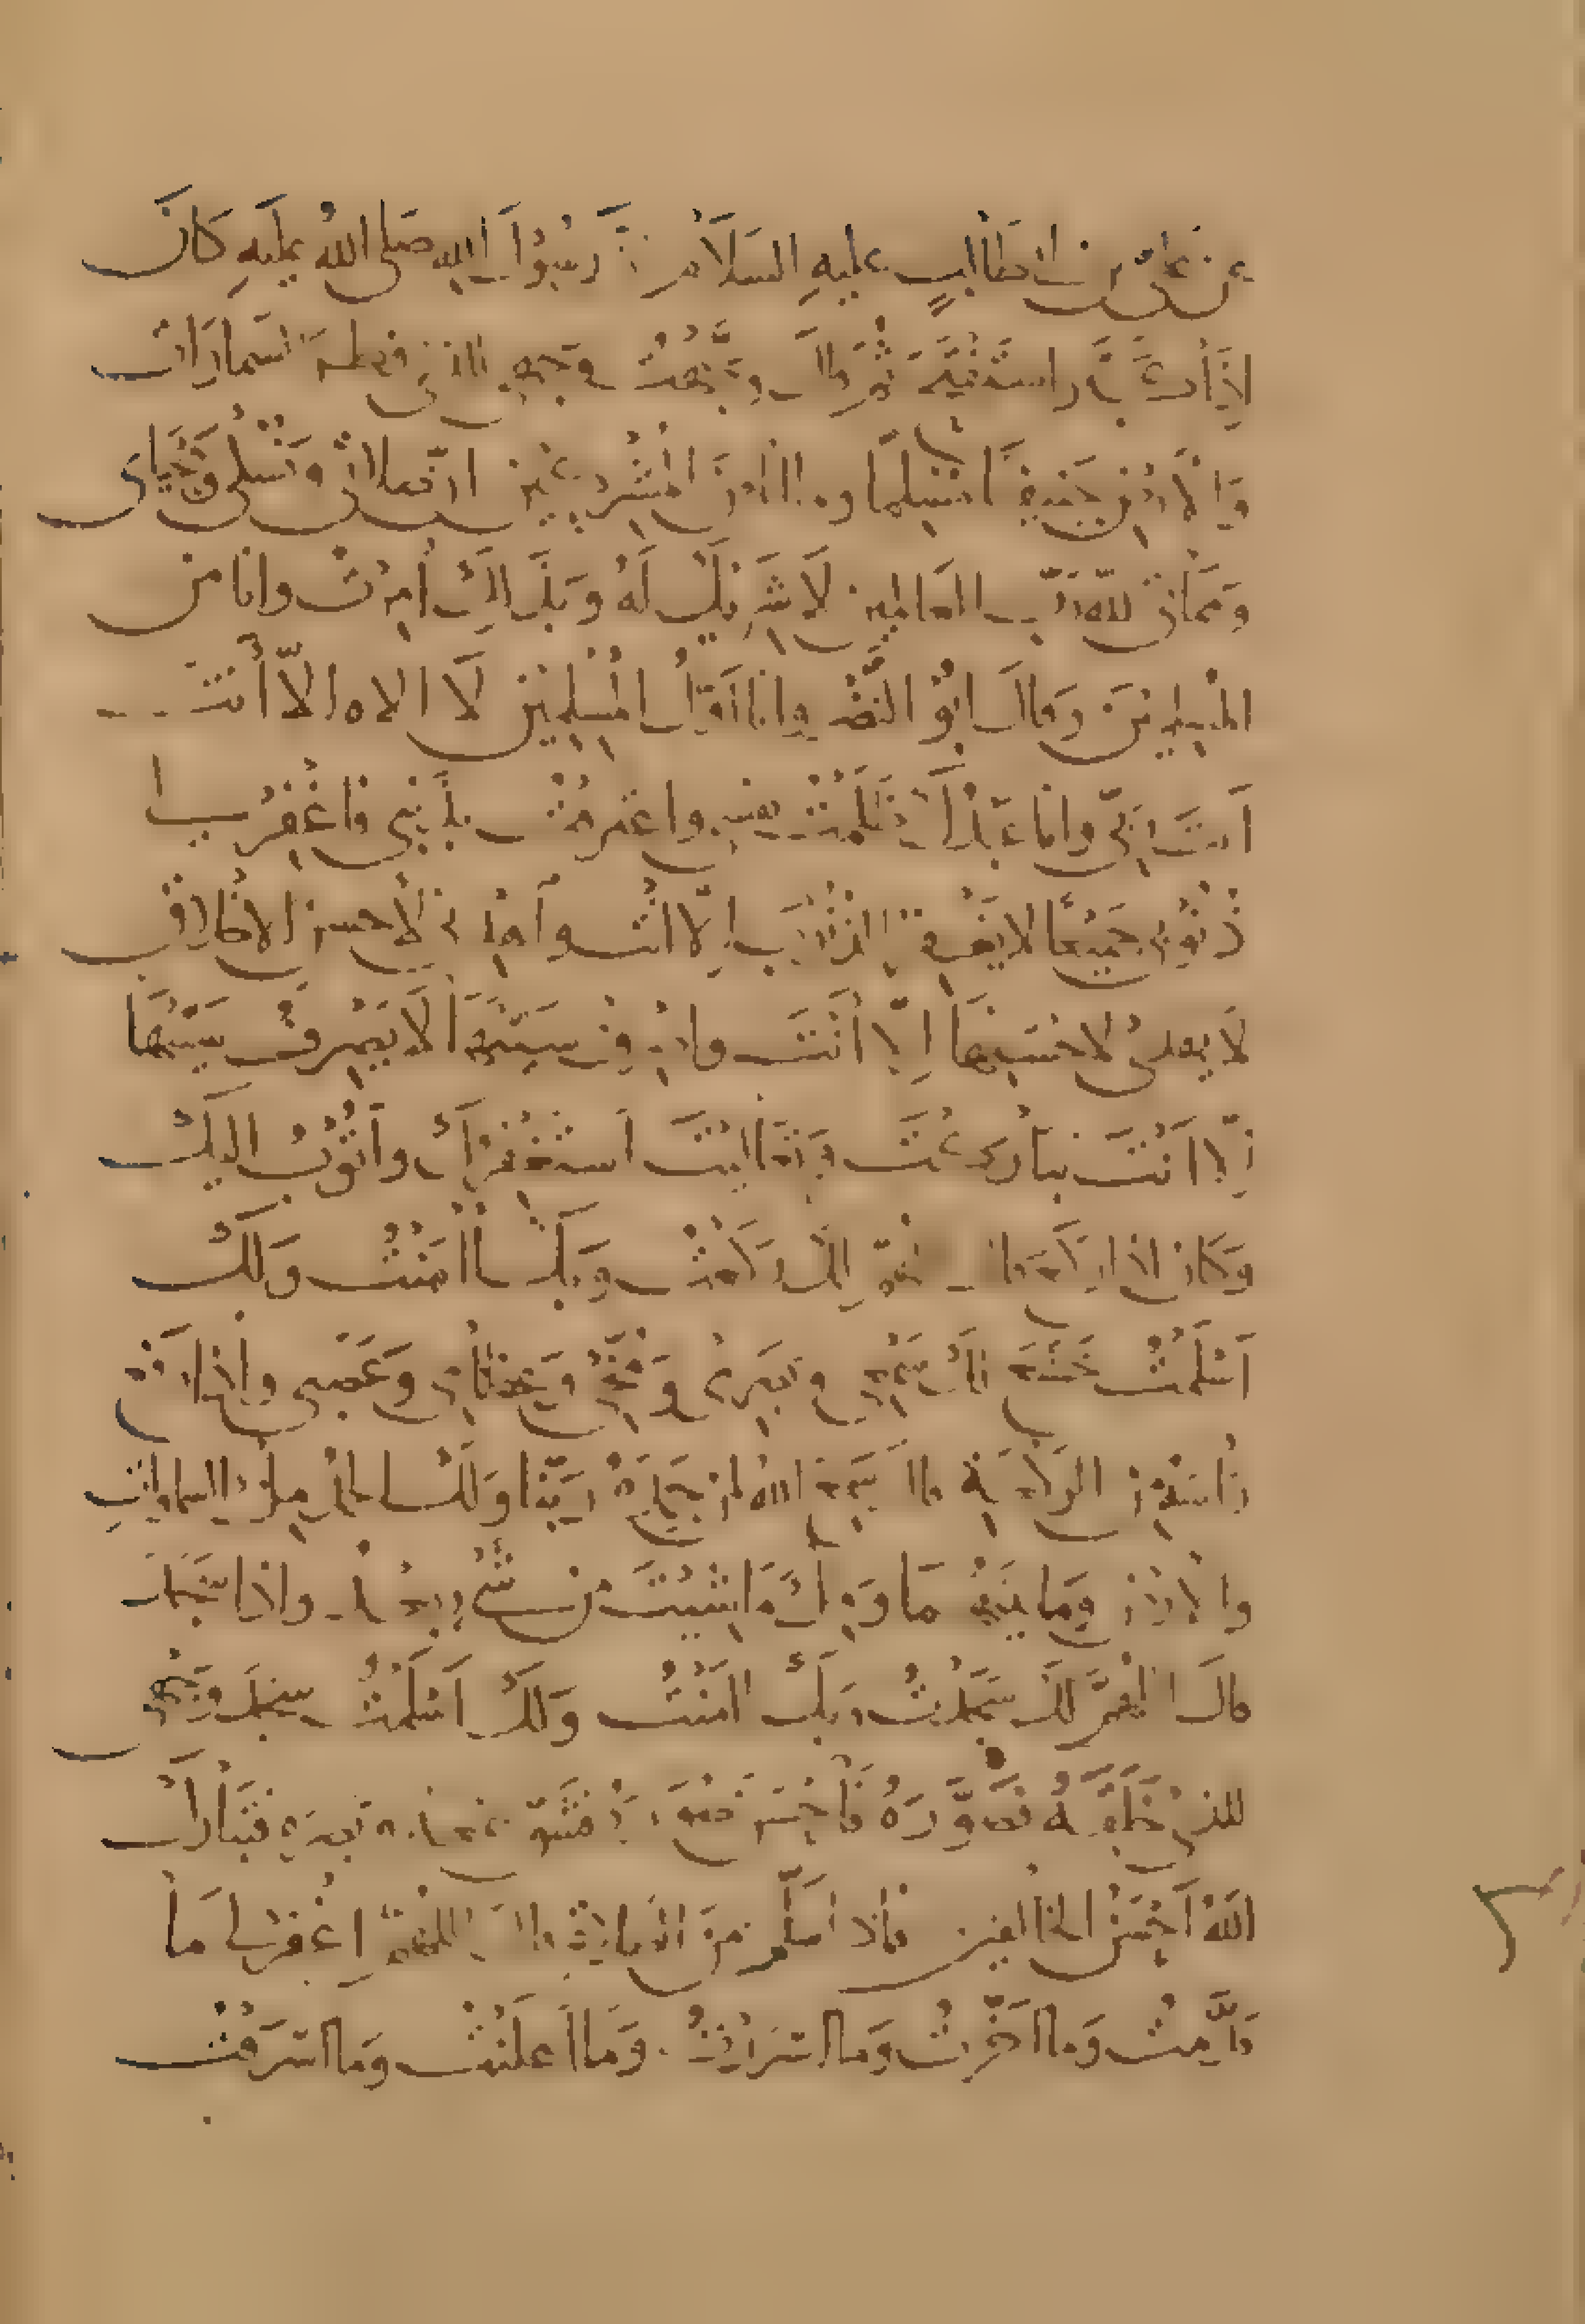 عن علي بن ابي طالبٍ عليهِ السَلَامُ أنَّ رَسُوْلَ اللهِ صَلى اللهُ عليَهِ كَانَ
إذَا كَبَّرَ استَفْتَحَ ثُمَّ قالَ وجَّهْتُ وجهي للذي فطرَ السَماوَاتِ
وَالْأَرْضَ حَنيفًا مُسْلِمًا وما انا مِنَ المُشْرِكِيْنَ انّ صَلاتي وَنُسُكِي وَمَحْيَاي
وَمَمَاتي للهِ رَبّ العَالمين لَا شَرِيْكَ لَهُ وَبذَلكَ أُمِرْتُ وانا من
المُسْلِمِيْنَ وَقالَ ابُوْ النَّضْرِ وانا اَوَّلُ المُسْلِمِيْن لَا الاه الاّ أنتَ
اَنتَ رَبّي وانا عَبْدُكَ ظَلَمْتُ نفسي واعترفْتُ بذَنْبِي فَاغْفِرْ لي
ذُنُوْبي جَمِيْعًا لا يَغْفِرُ الذُّنُوْبَ اِلّا انْتَ واهْدِني لأحسن الاخلاق
لَا يهدي لاحْسَنِهَا اِلّا أَنْتَ واصْرِفْ عني سَيّئَهَا لَا يَصْرِفُ سَيّئَهَا
اِلّا اَنْتَ تبَارَكْتَ وَتَعَاليْتَ اَستَغْفِرُكَ واَتُوْبُ اليكَ
وَكان اذا رَكَعَ قالَ اللهُمّ لكَ رَكَعْتُ وَبكَ اٰمَنْتُ وَلكَ
اَسْلَمْتُ خَشَعَ لكَ سَمْعِي وبَصَرِيْ وَمُخِّيْ وَعِظَامِي وَعَصَبي واِذا رَفَعَ
رَأسَهُ مِنَ الركْعَةِ قالَ سَمِعَ اللهُ لمَنْ حَمِدَهُ رَبّنَا وَلَكَ الحَمْدُ مِلْءَ السماواتِ
والْأرْضِ وَما بَيْنَهُمَا وَمِلْءَ مَا شِئْتَ مِن شَيءٍ بعْدُ واذا سَجَدَ
قالَ اللهُمَّ لكَ سَجَدْتُ وبكَ اٰمَنْتُ وَلكَ اَسْلَمْتُ سجَدَ وَجْهي
للذي خَلَقَهُ فصَوَّرَهُ فَأَحْسَنَ صُوَرَهُ فَشَقَّ سَمْعَهُ وَبصَرَهُ فتَبَارَكَ
اللهُ اَحْسَنُ الخالقين فاذا سَلّمَ مِنَ الصَلاةِ قالَ اللهُمّ اغْفِرْ لي مَا
قَدَّمتُ وَما اَخَّرتُ وَما اسرَرْتُ وَمَا اَعلَنْتُ وَما اسْرَفْتُ